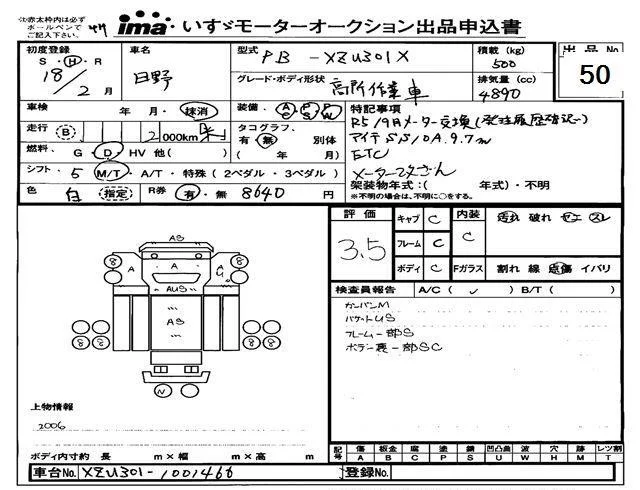 ※赤太枠内は必ず
ボールペンで
ご記入下さい。
ima いすゞモーターオークション出品申込書
初度登録 S・H・R 18/2月
車名 日野
型式 PB-XZU301X
積載(kg) 500
出品No 50
グレード・ボディ形状 高所作業車
排気量(cc) 4890
車検 年 月・抹消
装備
特記事項
R5/9月メーター交換(発注履歴確認)
走行 B 2 000km 米
タコグラフ 有・無 別体 ( 年 月)
アイチ SS10A 9.7m
燃料 G・D・HV 他( )
ETC
シフト 5 M/T・A/T・特殊(2ペダル・3ペダル)
メーター改ざん
色 白 指定
R券 有・無 8640 円
架装物年式:( 年式)・不明
※不明の場合は、不明に○をする。
評価 3.5
キャブ C
内装 C
汚れ 破れ コエ スレ
フレーム C
ボディ C
Fガラス 割れ 線 点傷 イバリ
検査員報告 A/C( ✓ ) B/T( )
カーバンM
バケットUS
フレーム一部S
ボデー裏一部SC
AS
8 A A A 8
G
AUS
AS
8 8 8 8
N
上物情報
2006
ボディ内寸約 長 m×幅 m×高 m
記号 傷 板金 腐 塗 錆 凹凸曲 波 穴 跡 レツ割
A B C P S U W H M T
車台No. XZU301-1001466
登録No.